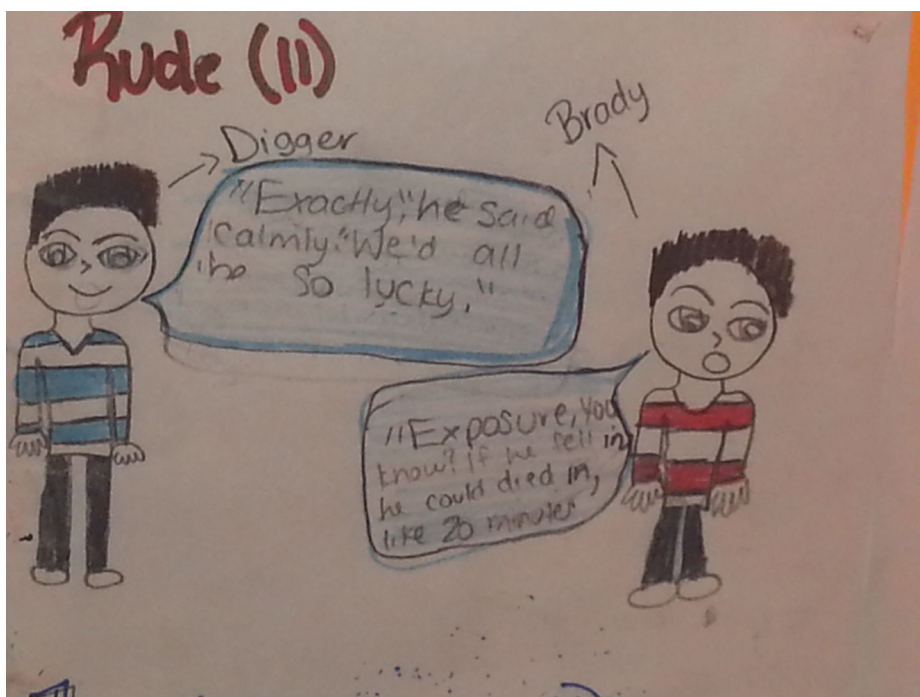 Rude (11)
Digger
"Exactly," he said
calmly. "We'd all
be so lucky."
Brady
"Exposure, you
know? If he fell in,
he could died in,
like 20 minutes